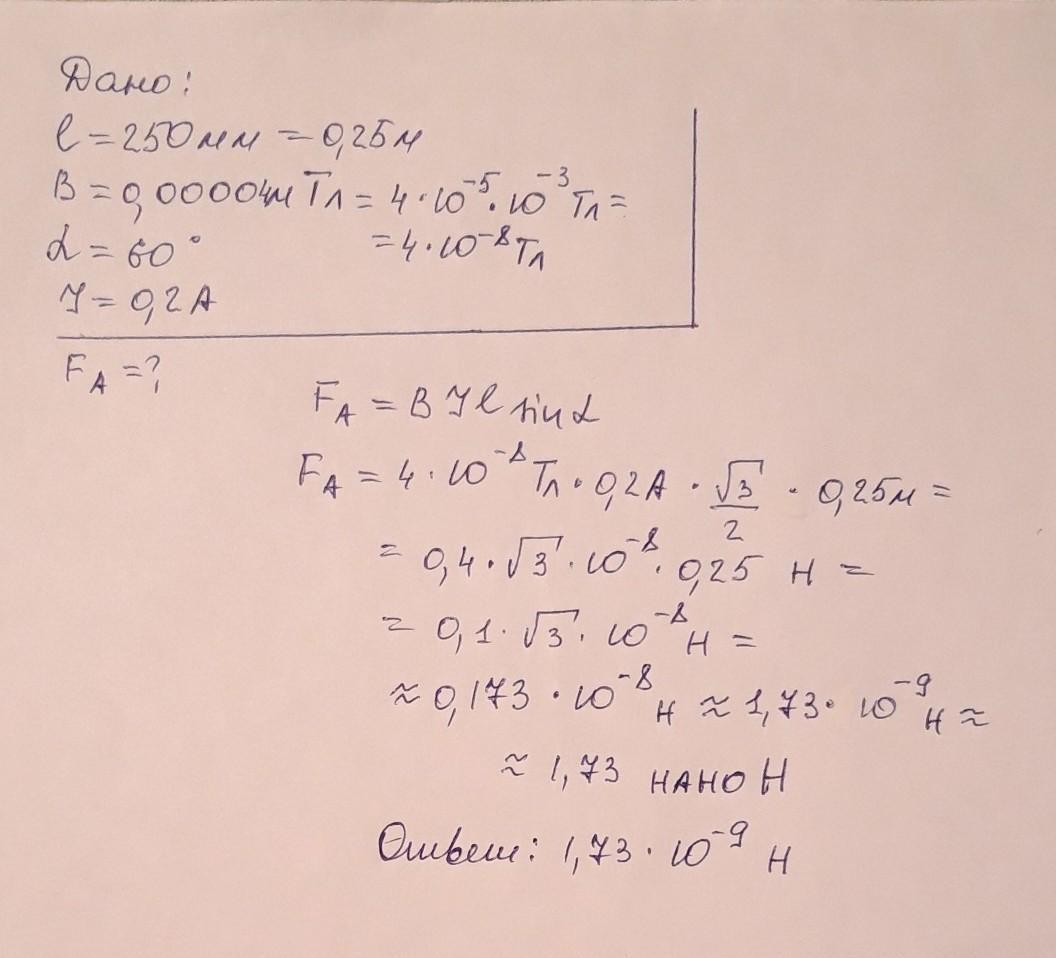 Дано:
l = 250 мм = 0,25 м
B = 0,00004 мТл = 4·10⁻⁵·10⁻³ Тл =
= 4·10⁻⁸ Тл
α = 60°
I = 0,2 А
F_A = ?
F_A = B I l sin α
F_A = 4·10⁻⁸ Тл · 0,2А · √3/2 · 0,25м =
= 0,4·√3·10⁻⁸·0,25 Н =
= 0,1·√3·10⁻⁸ Н =
≈ 0,173·10⁻⁸ Н ≈ 1,73·10⁻⁹ Н ≈
≈ 1,73 нано Н
Ответ: 1,73·10⁻⁹ Н